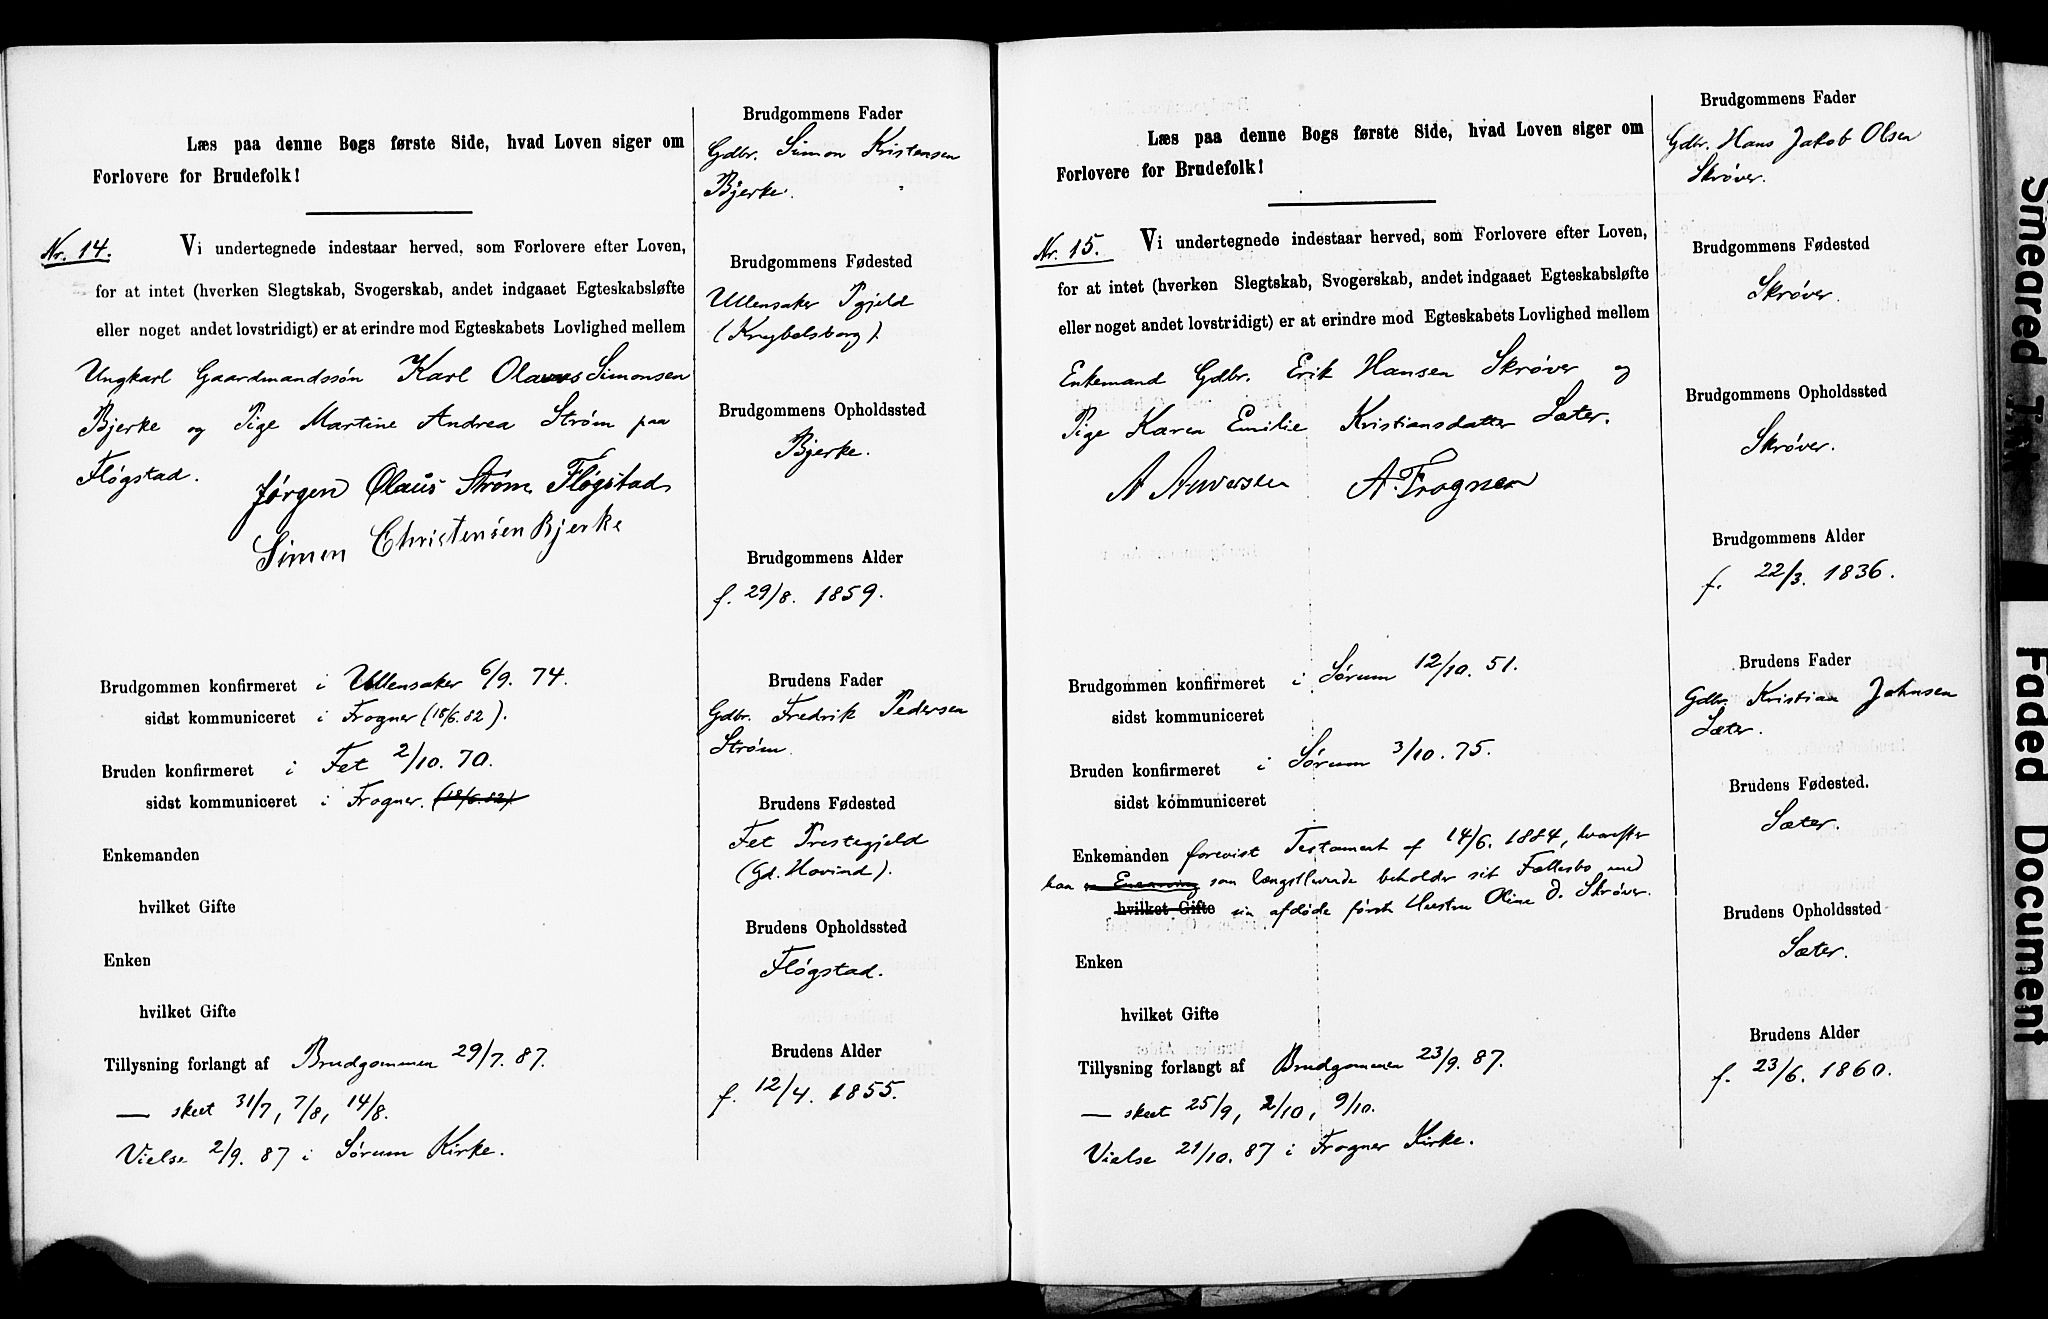 Læs paa denne Bogs første Side, hvad Loven siger om
Forlovere for Brudefolk!
Nr. 14. Vi undertegnede indestaar herved, som Forlovere efter Loven,
for at intet (hverken Slegtskab, Svogerskab, andet indgaaet Egteskabsløfte
eller noget andet lovstridigt) er at erindre mod Egteskabets Lovlighed mellem
Ungkarl Gaardmandssön Karl Olavus Simonsen
Bjerke og Pige Martine Andrea Strøm paa
Fløgstad.
Jørgen Olaus Strøm Fløgstad
Simen Christensen Bjerke
Brudgommen konfirmeret i Ullensaker 6/9. 74.
sidst kommuniceret i Frogner (18/6.82).
Bruden konfirmeret i Fet 2/10. 70.
sidst kommuniceret i Frogner. (18/6.82)
Enkemanden
hvilket Gifte
Enken
hvilket Gifte
Tillysning forlangt af Brudgommen 29/7. 87.
— skeet 31/7, 7/8, 14/8.
Vielse 2/9. 87 i Sørum Kirke.
Brudgommens Fader
Gdbr. Simon Kristensen
Bjerke.
Brudgommens Fødested
Ullensaker Pgjeld
(Krybelsborg).
Brudgommens Opholdssted
Bjerke.
Brudgommens Alder
f. 29/8. 1859.
Brudens Fader
Gdbr. Fredrik Pedersen
Strøm.
Brudens Fødested
Fet Prestegjeld
(Gd. Hovind).
Brudens Opholdssted
Fløgstad.
Brudens Alder
f. 12/4. 1855.
Læs paa denne Bogs første Side, hvad Loven siger om
Forlovere for Brudefolk!
Nr. 15. Vi undertegnede indestaar herved, som Forlovere efter Loven,
for at intet (hverken Slegtskab, Svogerskab, andet indgaaet Egteskabsløfte
eller noget andet lovstridigt) er at erindre mod Egteskabets Lovlighed mellem
Enkemand Gdbr. Erik Hansen Skrøver og
Pige Karen Emilie Kristiansdatter Sæter.
A Anversen A. Frogner
Brudgommen konfirmeret i Sørum 12/10. 51.
sidst kommuniceret
Bruden konfirmeret i Sørum 3/10. 75.
sidst kommuniceret
Enkemanden forevist Testament af 14/6. 1884, hvorefter
han som længstlevende beholder sit Fællesbo med
hvilket Gifte sin afdøde første Hustru Oline D. Skrøver.
Enken
hvilket Gifte
Tillysning forlangt af Brudgommen 23/9. 87.
— skeet 25/9, 2/10, 9/10.
Vielse 21/10. 87 i Frogner Kirke.
Brudgommens Fader
Gdbr. Hans Jakob Olsen
Skrøver.
Brudgommens Fødested
Skrøver.
Brudgommens Opholdssted
Skrøver.
Brudgommens Alder
f. 22/3. 1836.
Brudens Fader
Gdbr. Kristian Johnsen
Sæter.
Brudens Fødested.
Sæter.
Brudens Opholdssted
Sæter.
Brudens Alder
f. 23/6. 1860.
Smeared Ink
Faded Document